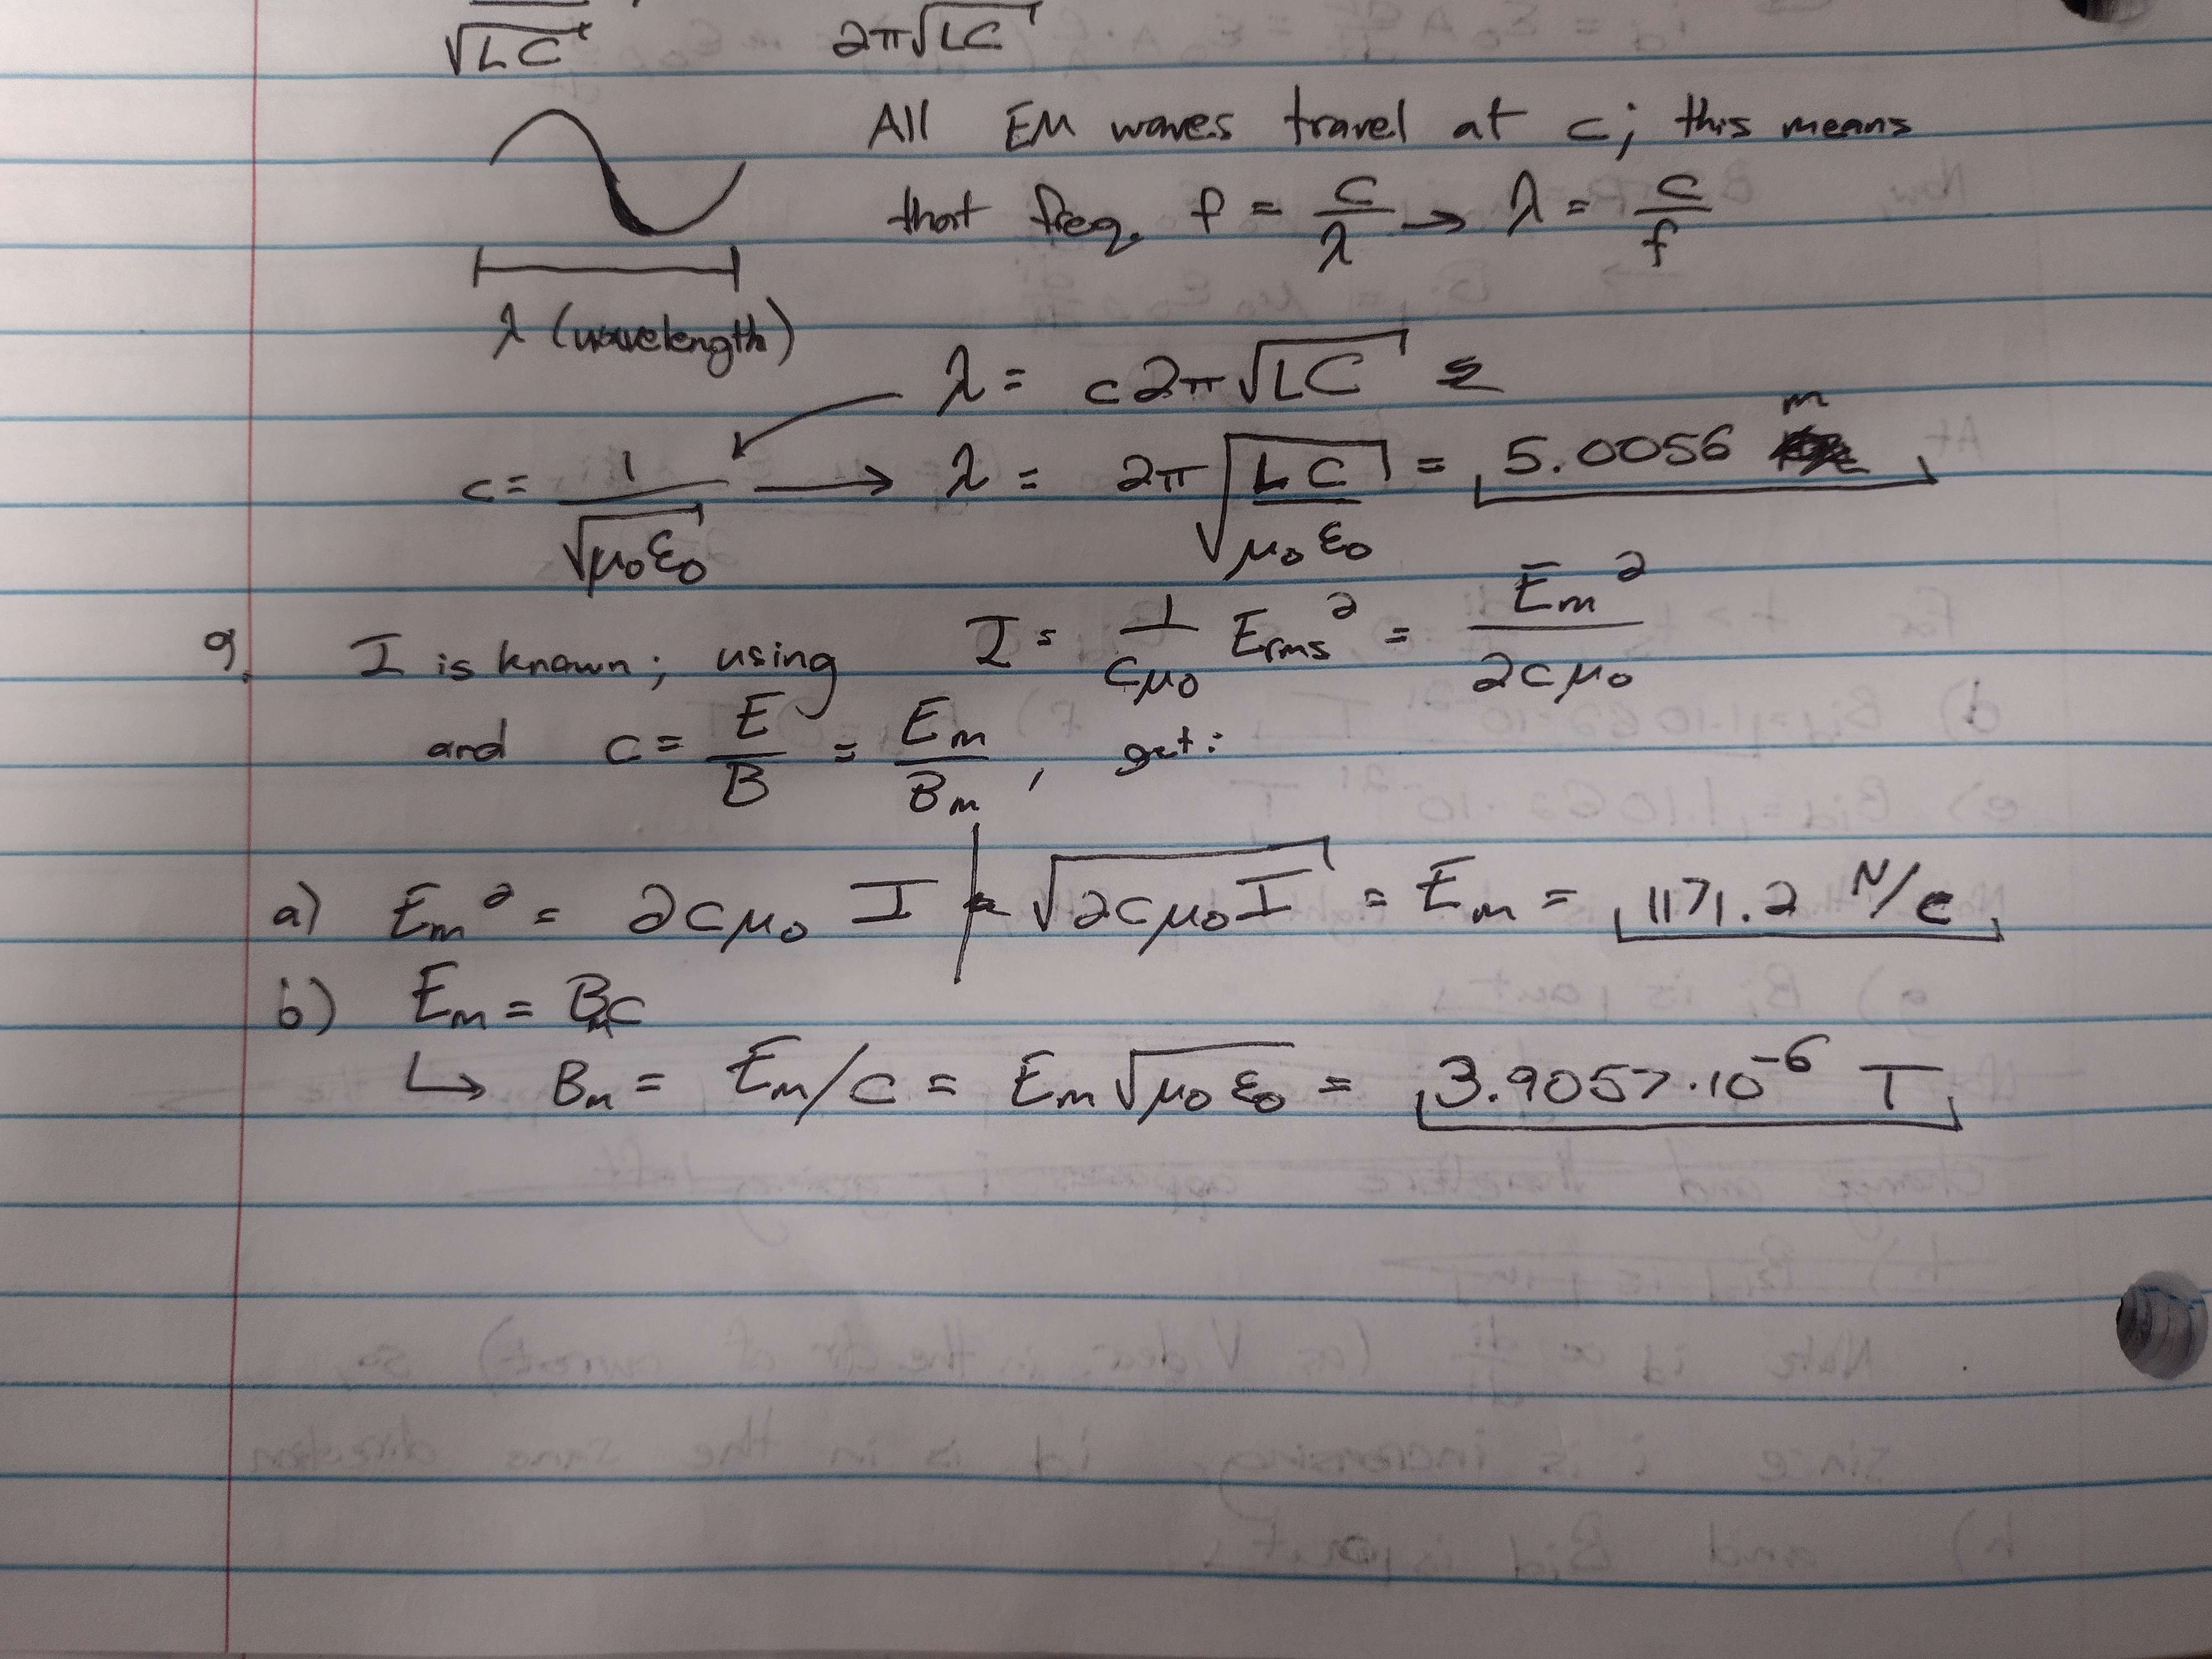 √LC 2π√LC
All EM waves travel at c; this means
that freq. f = c/λ → λ = c/f
λ (wavelength)
λ = c2π√LC =
c = 1/√μ₀ε₀ → λ = 2π√(LC/μ₀ε₀) = 5.0056 m
9. I is known; using I = 1/cμ₀ Erms² = Em²/2cμ₀
and c = E/B = Em/Bm, get:
a) Em² = 2cμ₀ I | √2cμ₀I = Em = 1171.2 N/C
b) Em = Bmc
↳ Bm = Em/c = Em√μ₀ε₀ = 3.9057·10⁻⁶ T